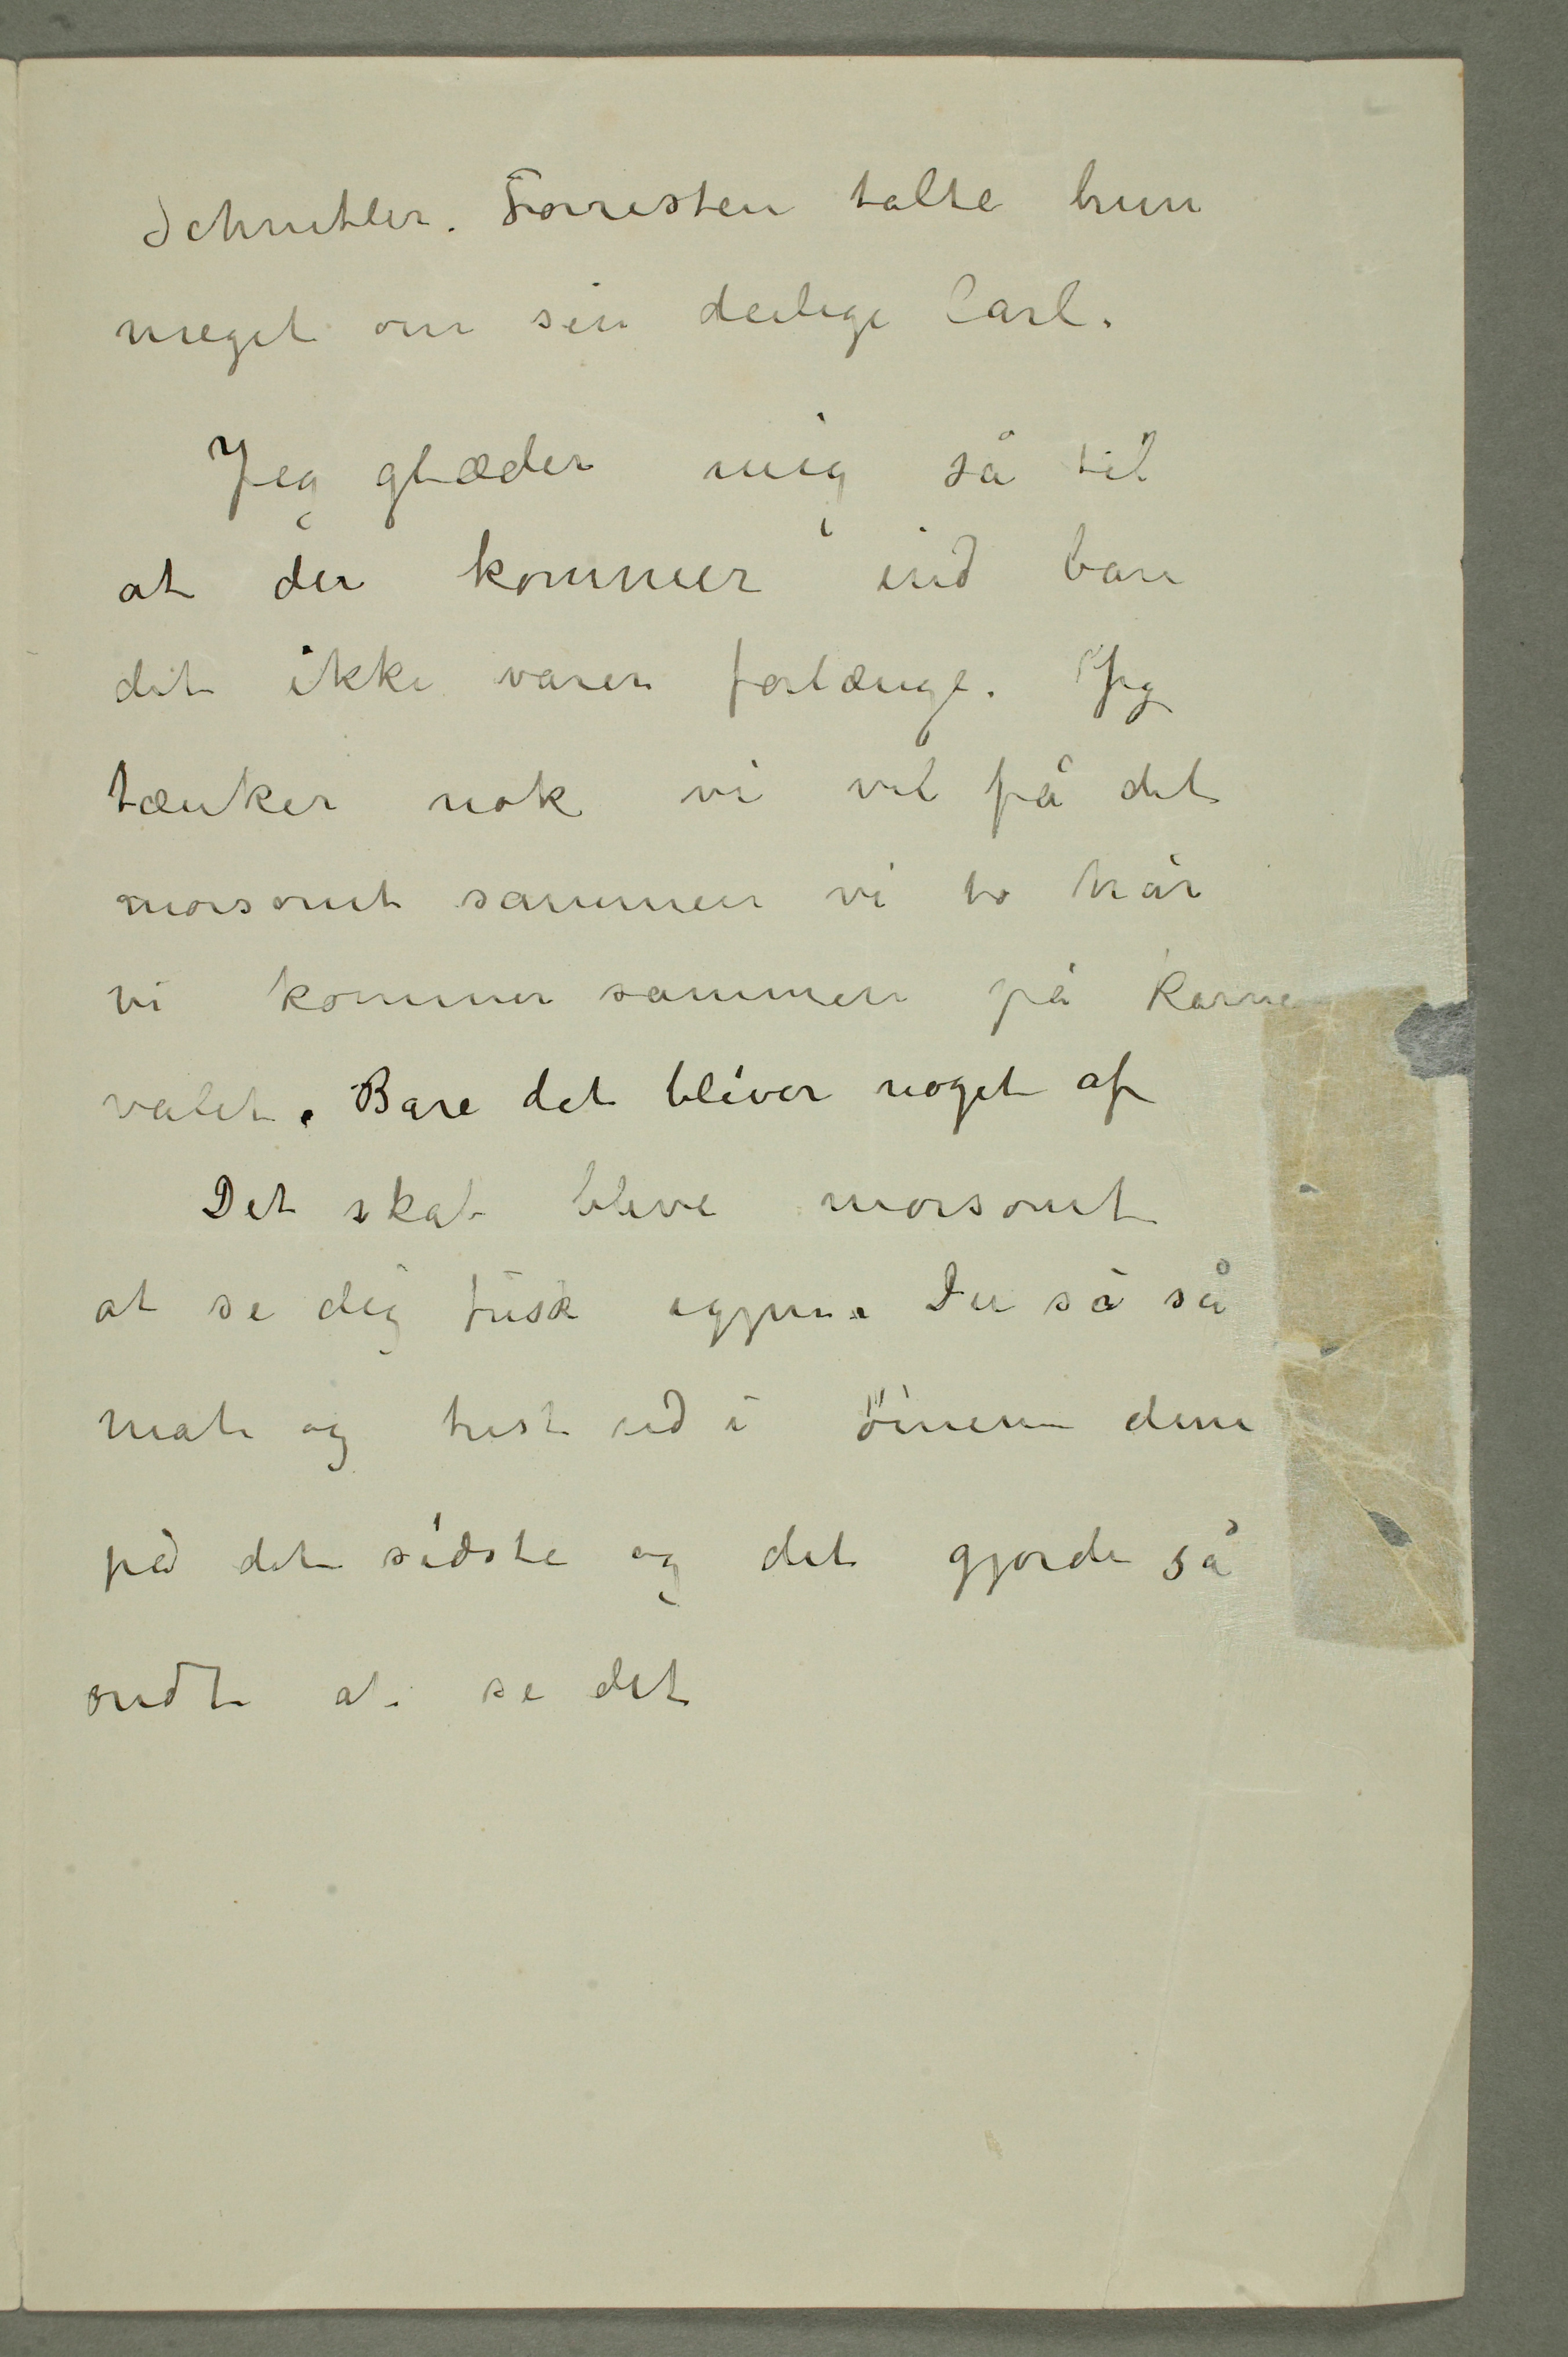 Schnitler. Forresten talte hun
meget om sin deilige Carl.
Jeg glæder mig så til
at du kommer ind bare
det ikke varer forlænge. Jeg
tænker nok vi vil få det
morsomt sammen vi to når
vi kommer sammen på karne
valet. Bare det bliver noget af
Det skal blive morsomt
at se dig frisk igjen. Du så så
mat og trist ud i öinene dine
på det sidste og det gjorde så
ondt at se det